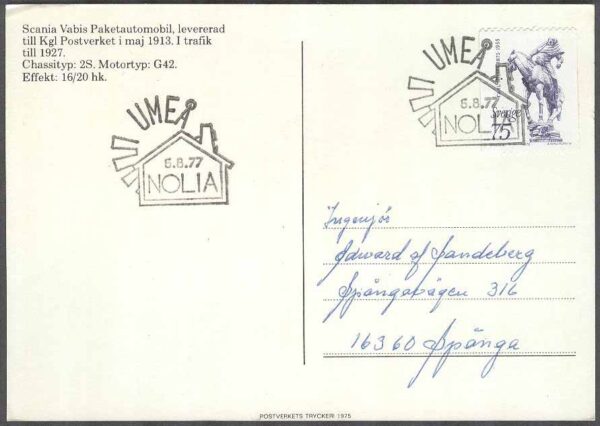 Scania Vabis Paketautomobil, levererad
till Kgl Postverket i maj 1913. I trafik
till 1927.
Chassityp: 2S. Motortyp: G42.
Effekt: 16/20 hk.
UMEÅ
5.8.77
NOLIA
UMEÅ
5.8.77
NOLIA
Sverige
75
Ingenjör
Edward af Sandeberg
Spångavägen 316
16360 Spånga
POSTVERKETS TRYCKERI 1975